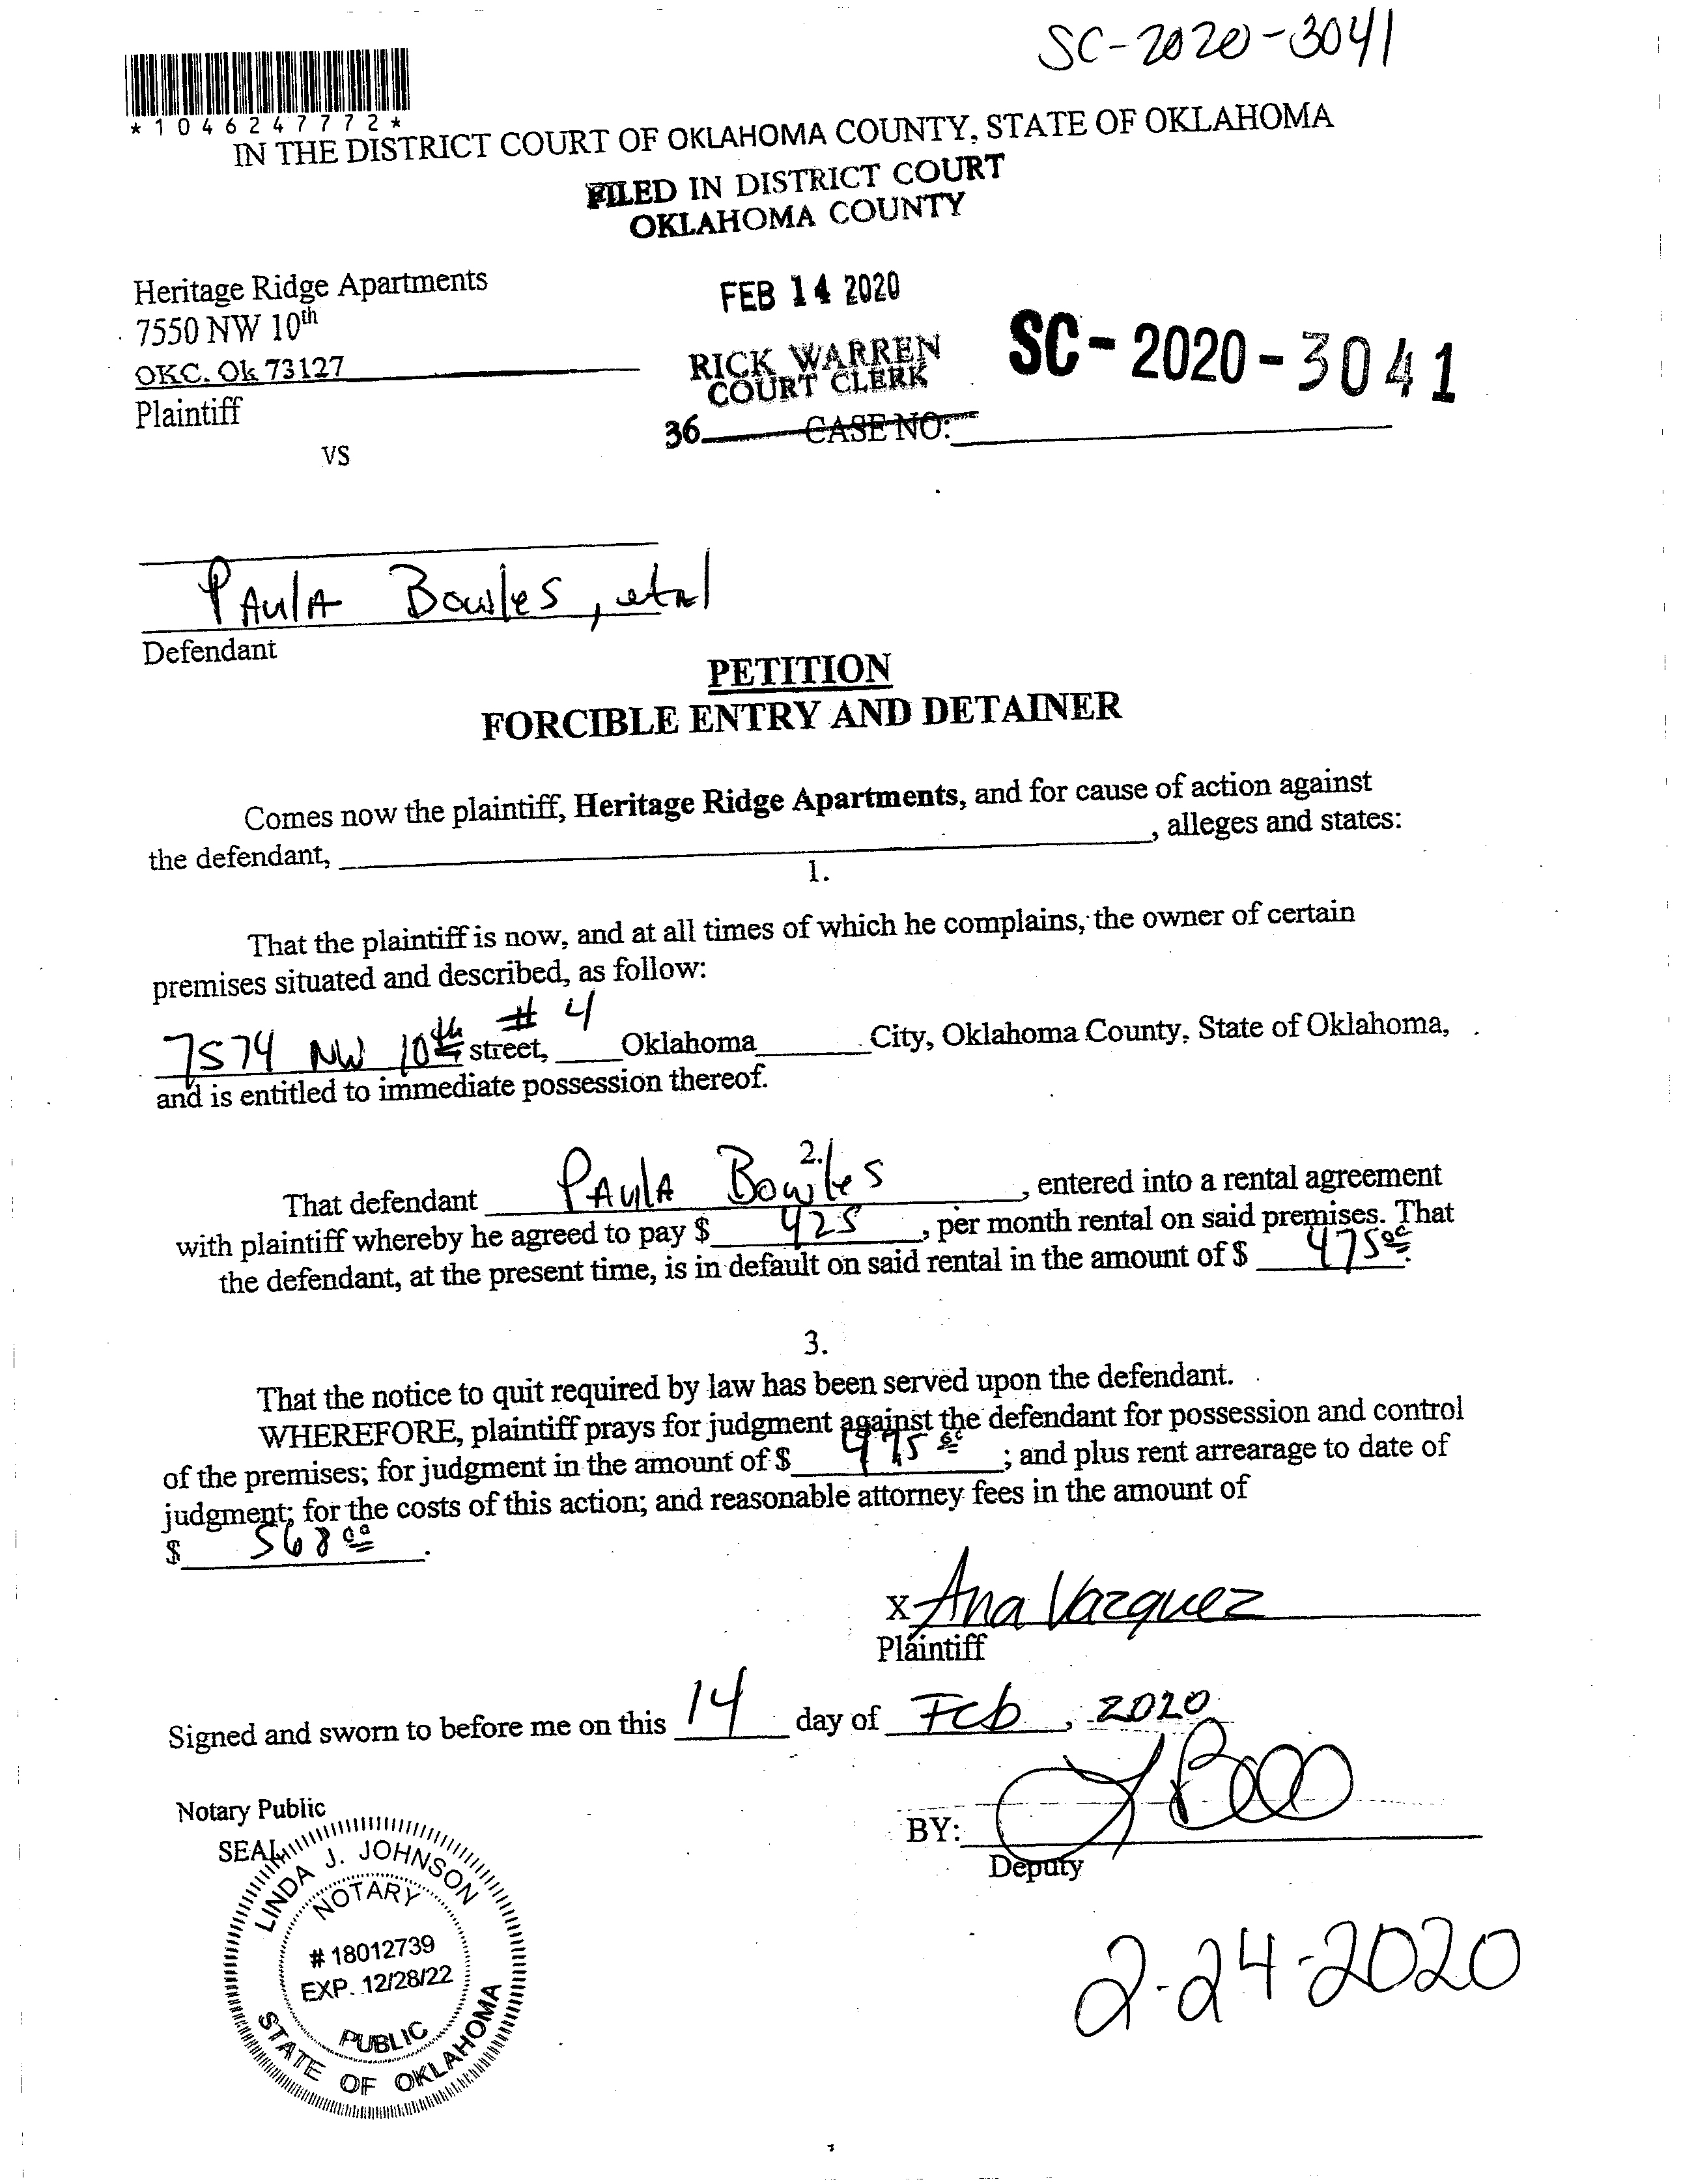 SC-2020-3041
*1046247772*
IN THE DISTRICT COURT OF OKLAHOMA COUNTY, STATE OF OKLAHOMA
FILED IN DISTRICT COURT
OKLAHOMA COUNTY
Heritage Ridge Apartments
7550 NW 10th
OKC. Ok 73127
Plaintiff
FEB 14 2020
RICK WARREN
COURT CLERK
SC-2020-3041
36 CASE NO:
VS
PAulA Bowles, etal
Defendant
PETITION
FORCIBLE ENTRY AND DETAINER
Comes now the plaintiff, Heritage Ridge Apartments, and for cause of action against
the defendant, , alleges and states:
1.
That the plaintiff is now, and at all times of which he complains, the owner of certain
premises situated and described, as follow:
7574 NW 10th # 4 street, Oklahoma City, Oklahoma County, State of Oklahoma,
and is entitled to immediate possession thereof.
2.
That defendant PAulA Bowles , entered into a rental agreement
with plaintiff whereby he agreed to pay $ 425 , per month rental on said premises. That
the defendant, at the present time, is in default on said rental in the amount of $ 475 00.
3.
That the notice to quit required by law has been served upon the defendant.
WHEREFORE, plaintiff prays for judgment against the defendant for possession and control
of the premises; for judgment in the amount of $ 475 00 ; and plus rent arrearage to date of
judgment; for the costs of this action; and reasonable attorney fees in the amount of
$ 568 00.
X Ana Vazquez
Plaintiff
Signed and sworn to before me on this 14 day of Feb , 2020
Notary Public
SEAL
BY:
Deputy
LINDA J. JOHNSON
NOTARY
# 18012739
EXP. 12/28/22
PUBLIC
STATE OF OKLAHOMA
2-24-2020